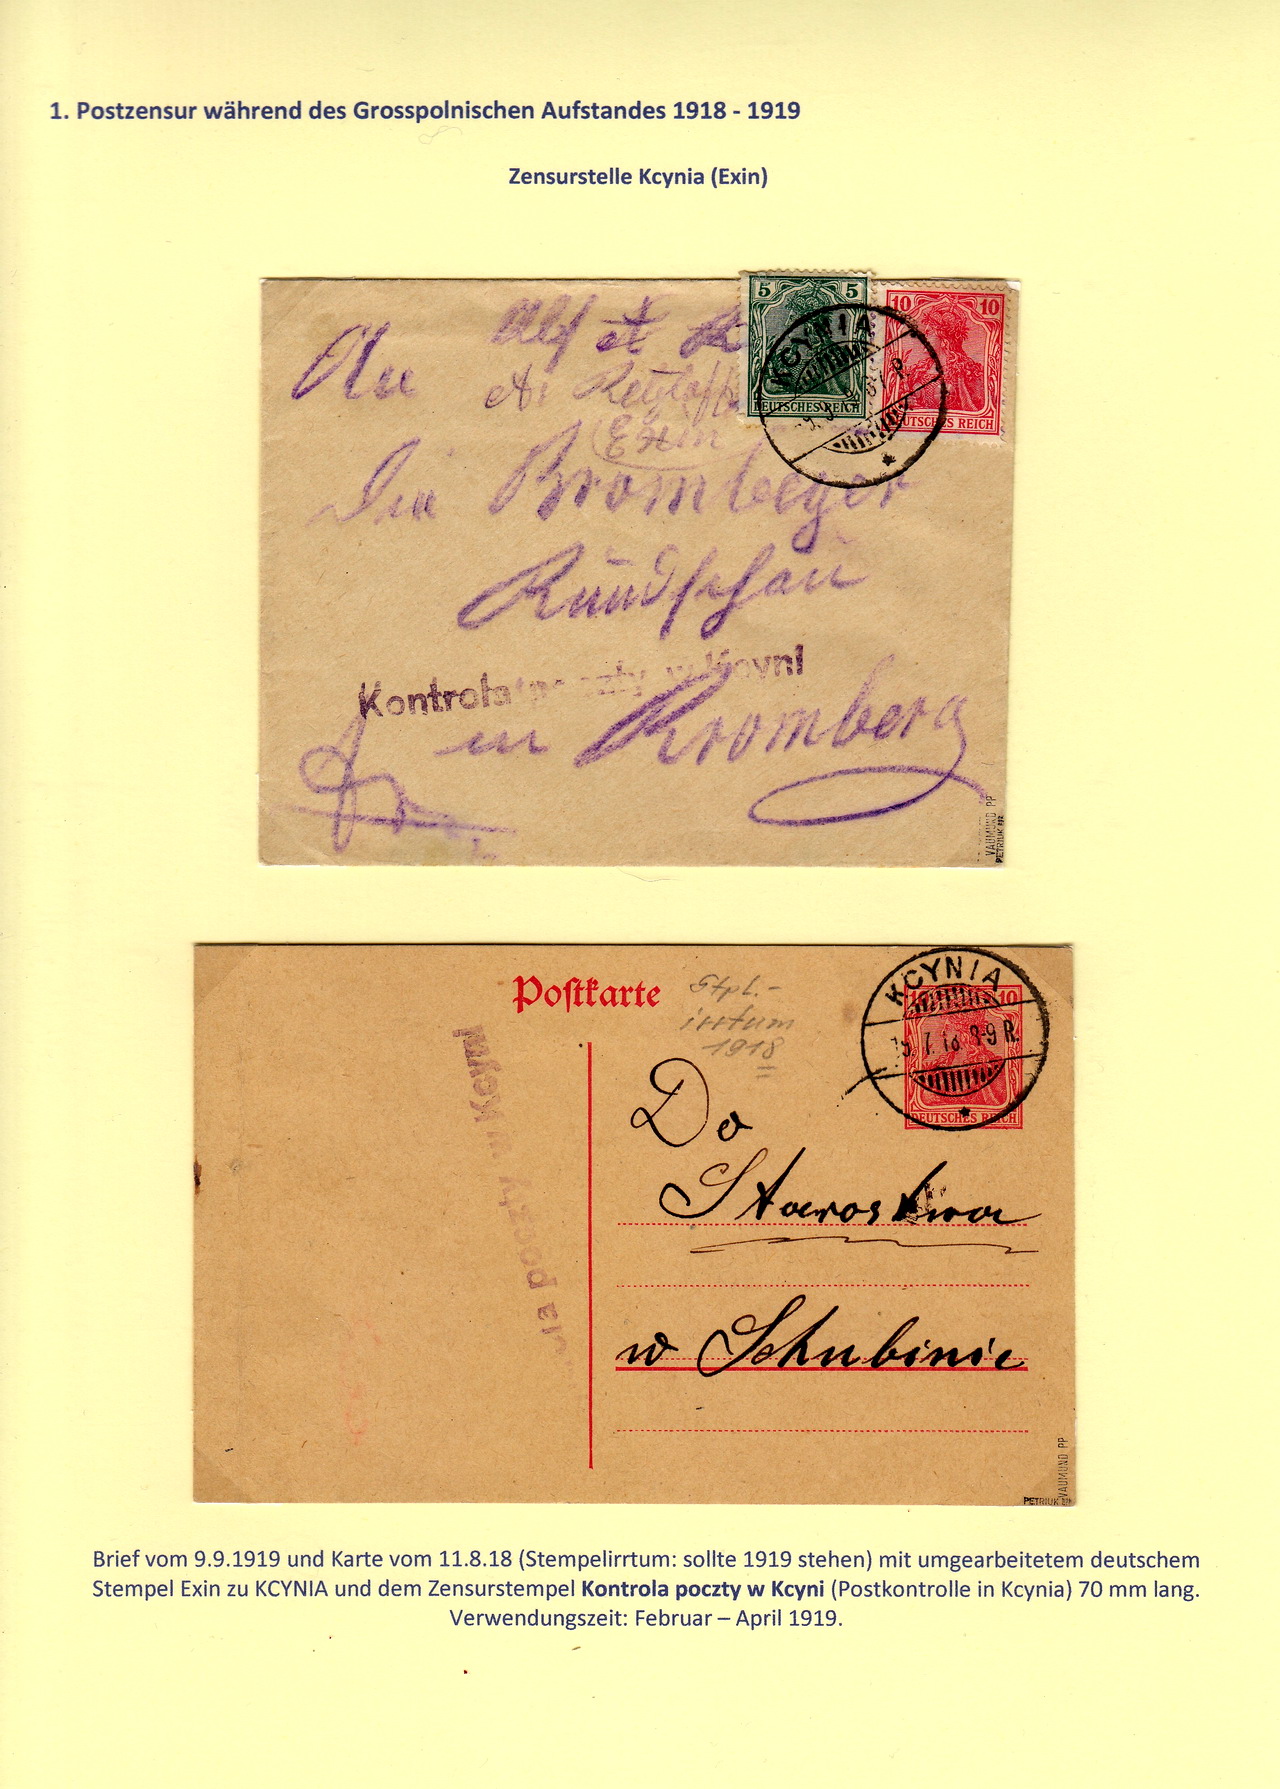 1. Postzensur während des Grosspolnischen Aufstandes 1918 - 1919
Zensurstelle Kcynia (Exin)
5 5
10 10
DEUTSCHES REICH
DEUTSCHES REICH
KCYNIA
An
Exin
Die Bromberger
Rundschau
Kontrola poczty w Kcyni
in Bromberg
VAUMUND PP
PETRIUK
Postkarte
Stpl.-
irrtum
1918
KCYNIA
10
8-9 R.
DEUTSCHES REICH
poczty w Kcyni
Do
Starostwa
w Schubinie
VAUMUND PP
PETRIUK
Brief vom 9.9.1919 und Karte vom 11.8.18 (Stempelirrtum: sollte 1919 stehen) mit umgearbeitetem deutschem
Stempel Exin zu KCYNIA und dem Zensurstempel Kontrola poczty w Kcyni (Postkontrolle in Kcynia) 70 mm lang.
Verwendungszeit: Februar – April 1919.